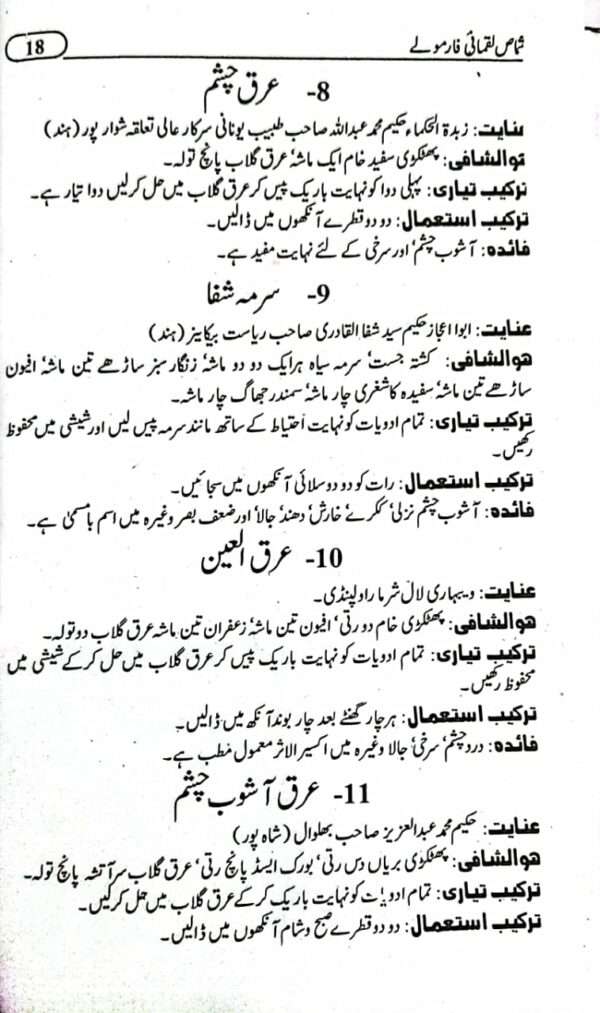 18
خاص لقمانی فارمولے
8- عرق چشم
عنایت: زبدۃ الحکماء حکیم محمد عبداللہ صاحب طبیب یونانی سرکار عالی تعلقہ شوار پور (ہند)
ھوالشافی: پھٹکڑی سفید خام ایک ماشہ‘ عرق گلاب پانچ تولہ۔
ترکیب تیاری: پہلی دوا کو نہایت باریک پیس کر عرق گلاب میں حل کرلیں دوا تیار ہے۔
ترکیب استعمال: دو دو قطرے آنکھوں میں ڈالیں۔
فائدہ: آشوب چشم‘ اور سرخی کے لئے نہایت مفید ہے۔
9- سرمہ شفا
عنایت: ابوا اعجاز حکیم سید شفا القادری صاحب ریاست بیکاینر (ہند)
ھوالشافی: کشتہ جست‘ سرمہ سیاہ ہر ایک دو دو ماشہ‘ زنگار سبز ساڑھے تین ماشہ‘ افیون
ساڑھے تین ماشہ‘ سفیدہ کاشغری چار ماشہ‘ سمندر جھاگ چار ماشہ۔
ترکیب تیاری: تمام ادویات کو نہایت احتیاط کے ساتھ مانند سرمہ پیس لیں اور شیشی میں محفوظ
رکھیں۔
ترکیب استعمال: رات کو دو دو سلائی آنکھوں میں سجائیں۔
فائدہ: آشوب چشم نزلی‘ ککرے‘ خارش‘ دھند‘ جالا‘ اور ضعف بصر وغیرہ میں اسم بامسمیٰ ہے۔
10- عرق العین
عنایت: ویبہاری لال شرما راولپنڈی۔
ھوالشافی: پھٹکڑی خام دو رتی‘ افیون تین ماشہ‘ زعفران تین ماشہ عرق گلاب دو تولہ۔
ترکیب تیاری: تمام ادویات کو نہایت باریک پیس کر عرق گلاب میں حل کر کے شیشی میں
محفوظ رکھیں۔
ترکیب استعمال: ہر چار گھنٹے بعد چار بوند آنکھ میں ڈالیں۔
فائدہ: درد چشم‘ سرخی‘ جالا وغیرہ میں اکسیر الاثر معمول مطب ہے۔
11- عرق آشوب چشم
عنایت: حکیم محمد عبدالعزیز صاحب بھلوال (شاہ پور)
ھوالشافی: پھٹکڑی بریاں دس رتی‘ بورک ایسڈ پانچ رتی‘ عرق گلاب سر آتشہ پانچ تولہ۔
ترکیب تیاری: تمام ادویات کو نہایت باریک کر کے عرق گلاب میں حل کرلیں۔
ترکیب استعمال: دو دو قطرے صبح و شام آنکھوں میں ڈالیں۔